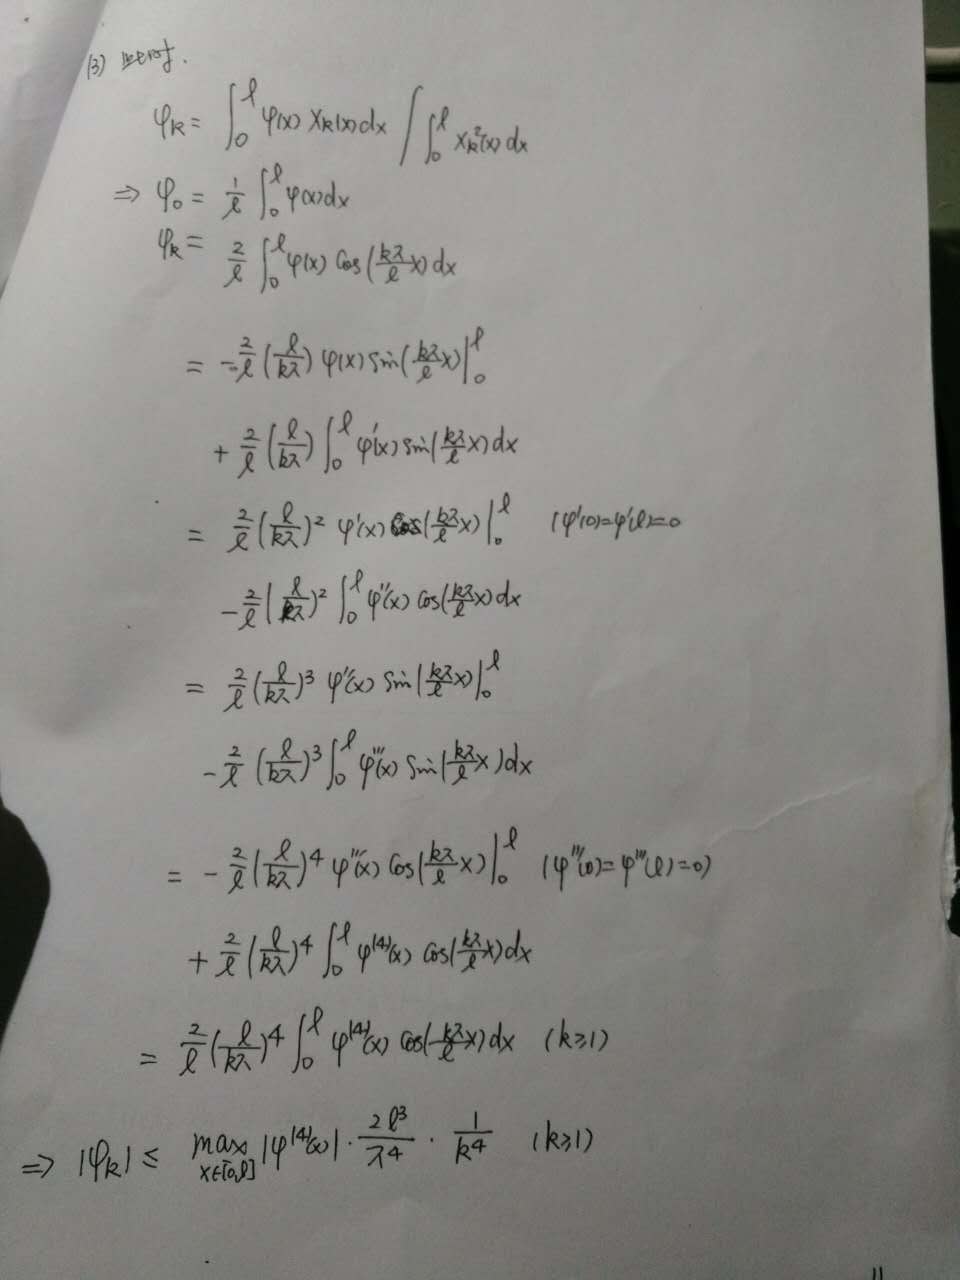 (3) 此时.
φk = ∫₀^l φ(x) Xk(x) dx / ∫₀^l Xk²(x) dx
⇒ φ₀ = 1/l ∫₀^l φ(x) dx
φk = 2/l ∫₀^l φ(x) cos(kπ/l x) dx
= -2/l (l/kπ) φ(x) sin(kπ/l x) |₀^l
+ 2/l (l/kπ) ∫₀^l φ'(x) sin(kπ/l x) dx
= 2/l (l/kπ)² φ'(x) cos(kπ/l x) |₀^l (φ'(0)=φ'(l)=0
- 2/l (l/kπ)² ∫₀^l φ''(x) cos(kπ/l x) dx
= 2/l (l/kπ)³ φ''(x) sin(kπ/l x) |₀^l
- 2/l (l/kπ)³ ∫₀^l φ'''(x) sin(kπ/l x) dx
= - 2/l (l/kπ)⁴ φ'''(x) cos(kπ/l x) |₀^l (φ'''(0)=φ'''(l)=0)
+ 2/l (l/kπ)⁴ ∫₀^l φ^(4)(x) cos(kπ/l x) dx
= 2/l (l/kπ)⁴ ∫₀^l φ^(4)(x) cos(kπ/l x) dx (k≥1)
⇒ |φk| ≤ max x∈[0,l] |φ^(4)(x)| · 2l³/π⁴ · 1/k⁴ (k≥1)